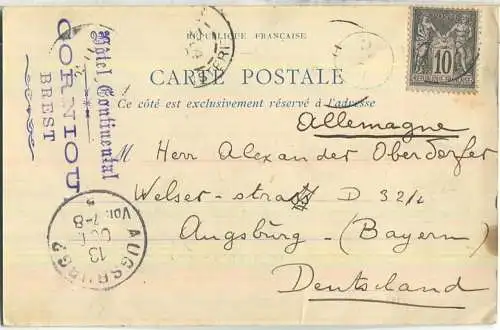 RÉPUBLIQUE FRANÇAISE
CARTE POSTALE
Ce côté est exclusivement réservé à l'adresse
POSTE
10
Allemagne
M Herr Alexander Oberdorfer
Welser-strass D 32/2
Augsburg (Bayern)
Deutschland
Hôtel Continental
CORNIOU
BREST
AUGSBURG 2
13
OCT
Vor. 7-8